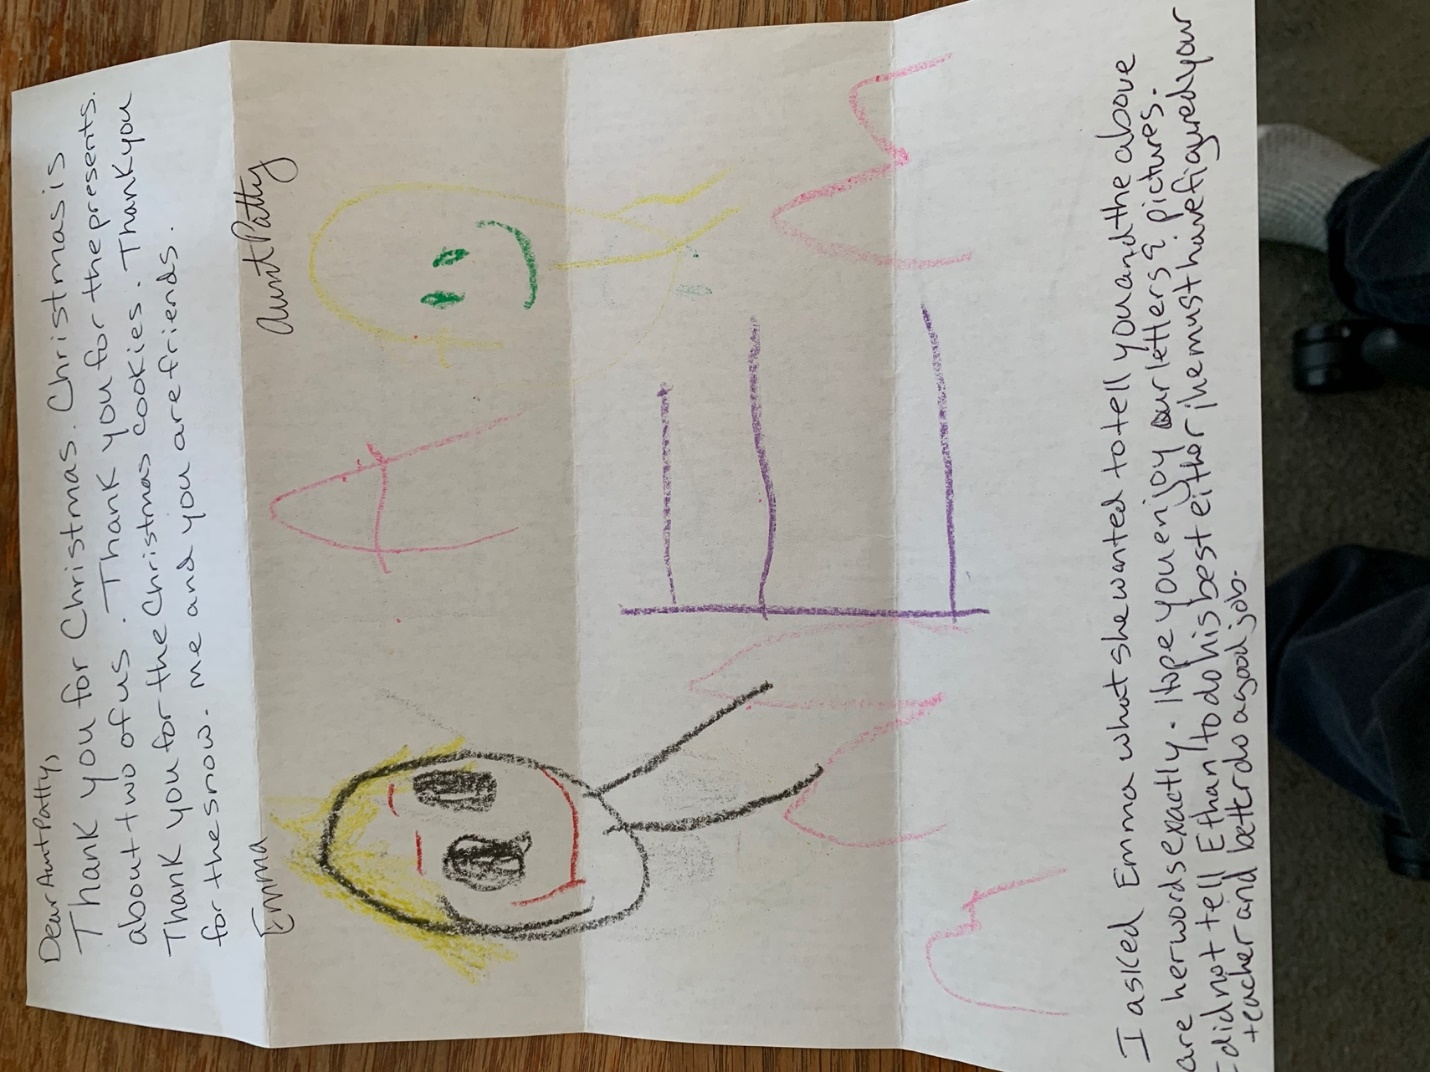 Dear Aunt Patty,
Thank you for Christmas. Christmas is
about two of us. Thank you for the presents.
Thank you for the Christmas cookies. Thank you
for the snow. me and you are friends.
Emma
Aunt Patty
A
E
m
m
I asked Emma what she wanted to tell you and the above
are her words exactly. Hope you enjoy our letters & pictures.
- did not tell Ethan to do his best either; he must have figured your
teacher and better do a good job.